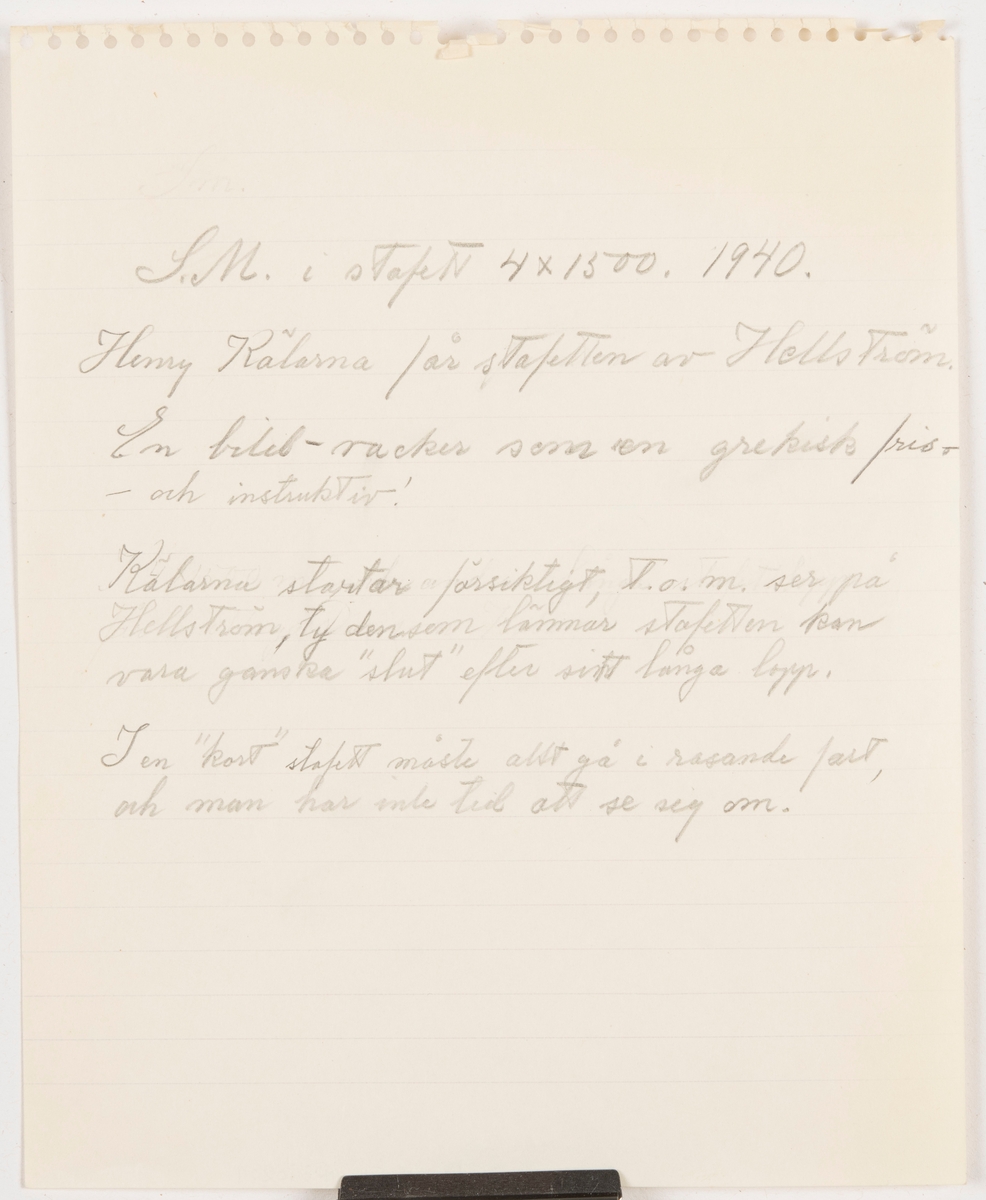 S.M. i stafett 4x1500. 1940.
Henry Kälarna får stafetten av Hellström.
En bild - vacker som en grekisk fris -
- och instruktiv!
Kälarna startar försiktigt, t.o.m. ser på
Hellström, ty den som lämnar stafetten kan
vara ganska "slut" efter sitt långa lopp.
I en "kort" stafett måste allt gå i rasande fart,
och man har inte tid att se sig om.